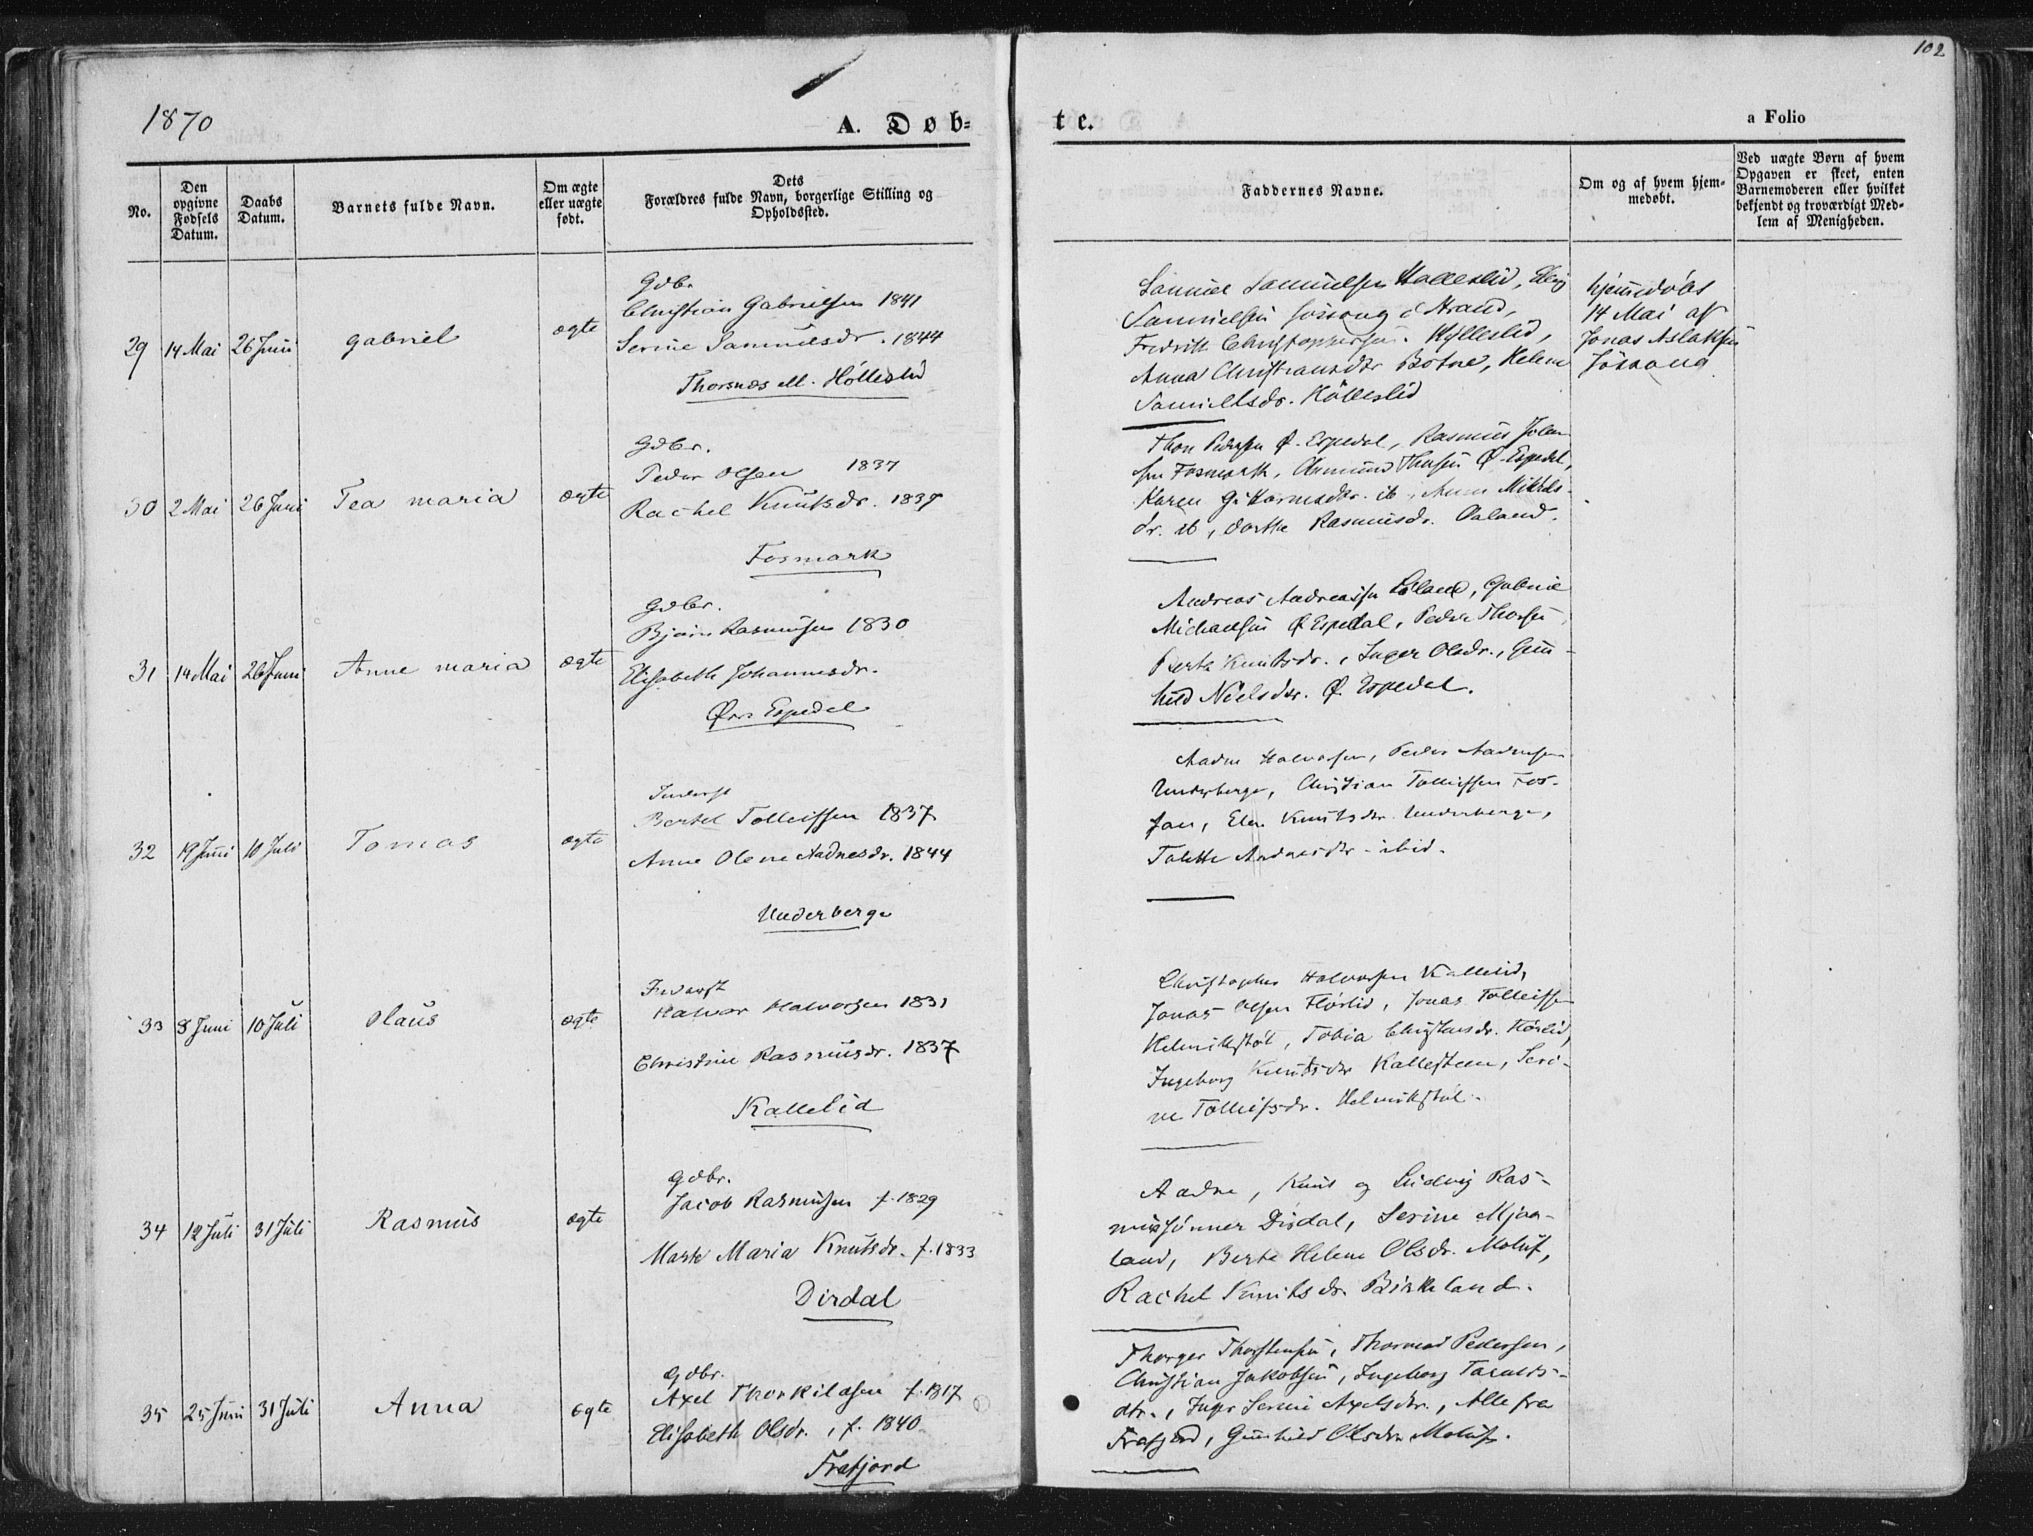 102
1870
A. Døb=
te.
a Folio
No.
Den opgivne Fødsels Datum.
Daabs Datum.
Barnets fulde Navn.
Om ægte eller uægte født.
Dets Forældres fulde Navn, borgerlige Stilling og Opholdssted.
Faddernes Navne.
Om og af hvem hjem-medøbt.
Ved uægte Børn af hvem Opgaven er skeet, enten Barnemoderen eller hvilket bekjendt og troværdigt Med-lem af Menigheden.
29 14 Mai 26 Juni Gabriel ægte
Gdbr.
Christian Gabrielsen 1841
Serine Samuelsdr. 1844
Thorsnes Hölleslid
Samuel Samuelsen Hölleslid,
Samuelsen Jøssang i Strand,
Fredrik Christophersen Hölleslid,
Anna Christiansdtr Botne, Helene
Samuelsdr. Hölleslid
hjemmedøbt
14 Mai af
Jonas Aslaksen
Jössang
30 2 Mai 26 Juni Tea maria ægte
Gdbr.
Peder Olsen 1837
Rachel Knutsdr. 1839
Fosmark
Thon Pedersen Ø. Espedal, Rasmus
sen Fosmark, Thorsen Ø. Espedal,
Karen ib,
dr. ib, Dorthe Rasmusdr. Øaland.
31 14 Mai 26 Juni Anne maria ægte
Gdbr.
Bjørn Rasmusen 1830
Elisabeth Johannesdr.
Øvr. Espedal
Andreas Andreassen, Gabriel
Michaelsen Ø Espedal, Peder Thorsen,
Berte Knutsdr., Inger Olsdr., Gun-
hild Nielsdtr. Ø. Espedal.
32 19 Juni 10 Juli Tomas ægte
Inderst
Bertel Tolleifsen 1837
Anne Olene Aadnesdr. 1844
Underberge
Aadne Halvorsen, Peder Aadnesen
Underberge, Christian Tolleifsen Fos-
san, Elen Knutsdtr. Underberge,
Tolette Aadnesdtr - ibid.
33 8 Juni 10 Juli Olaus ægte
Inderst
Halvor Halvorsen 1831
Christine Rasmusdr. 1837
Kallelid
Christopher Halvorsen Kallelid,
Jonas Olsen Flørlid, Jonas Tolleifsen
Helmikstøl, Tobia Christensdr. Flørlid,
Ingeborg Knutsdtr Kallesteen, Seri-
ne Tolleifsdr. Helmikstøl.
34 12 Juli 31 Juli Rasmus ægte
Gdbr.
Jacob Rasmusen f. 1829
Marte Maria Knutsdr. f. 1833
Dirdal
Aadne, Knut og Ludvig Ras-
mussønner Dirdal, Serine Mjaa-
land, Berte Helene Olsdr. Moluf,
Rachel Knutsdr Birkeland.
35 25 Juni 31 Juli Anna ægte
Gdbr.
Axel Thorkildsen f. 1817
Elisabeth Olsdr., f. 1840
Frafjord
Thorger Thorstensen, Thormod Pedersen,
Christian Jakobsen, Ingeborg Taralds-
dtr., Inger Serine Axelsdtr., Alle fra
Frafjord, Gunhild Olsdtr Moluf.